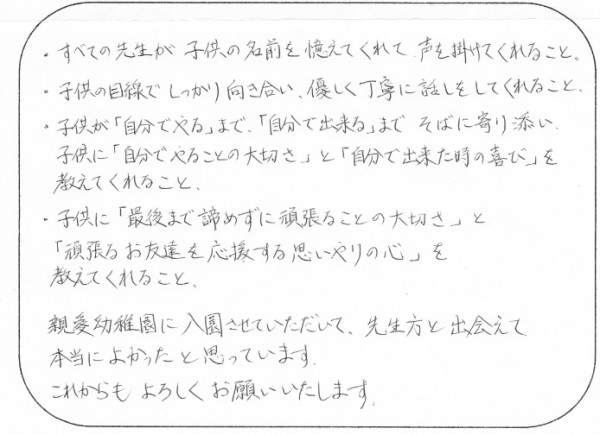 ・すべての先生が 子供の名前を憶えてくれて 声を掛けてくれること。
・子供の目線で しっかり向き合い、優しく丁寧に話しをしてくれること。
・子供が「自分でやる」まで、「自分で出来る」まで そばに寄り添い、
子供に「自分でやることの大切さ」と「自分で出来た時の喜び」を
教えてくれること。
・子供に「最後まで諦めずに頑張ることの大切さ」と
「頑張るお友達を応援する思いやりの心」を
教えてくれること。
親愛幼稚園に入園させていただいて、先生方と出会えて
本当によかったと思っています。
これからも よろしくお願いいたします。